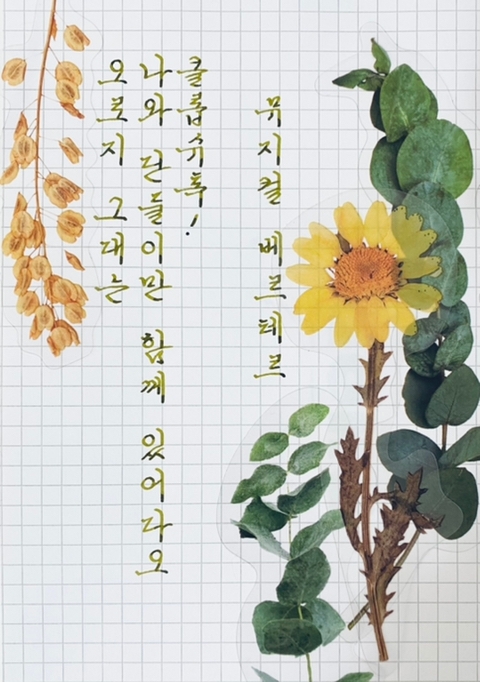 뮤지컬 베르테르
클롭슈톡!
나와 단 둘이만 함께 있어다오
오로지 그대는